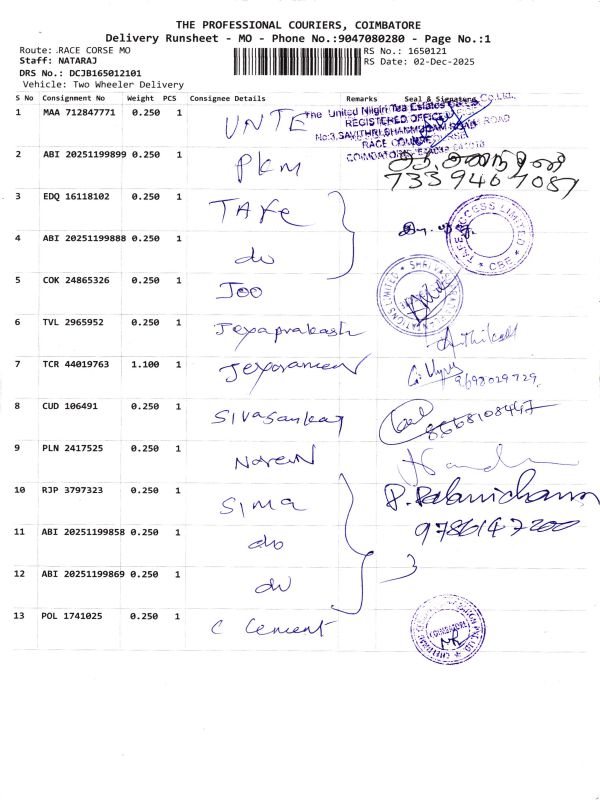 THE PROFESSIONAL COURIERS, COIMBATORE
Delivery Runsheet - MO - Phone No.:9047080280 - Page No.:1
Route: RACE CORSE MO
RS No.: 1650121
Staff: NATARAJ
RS Date: 02-Dec-2025
DRS No.: DCJB165012101
Vehicle: Two Wheeler Delivery
S No Consignment No Weight PCS Consignee Details Remarks Seal & Signature
1 MAA 712847771 0.250 1 UNTE
The United Nilgiri Tea Estates Co.Ltd.,
REGISTERED OFFICE
No:3, SAVITHRI SHANMUGAM ROAD
RACE COURSE
2 ABI 20251199899 0.250 1 PKM
733 940 7087
3 EDQ 16118102 0.250 1 TAFE
TAFE ACCESS LIMITED
CBE
4 ABI 20251199888 0.250 1 do
5 COK 24865326 0.250 1 JOO
6 TVL 2965952 0.250 1 Jeyaprakash
7 TCR 44019763 1.100 1
9698029729
8 CUD 106491 0.250 1 Sivasankar
8668108447
9 PLN 2417525 0.250 1 Naren
10 RJP 3797323 0.250 1 SIMA
P. Palanichamy
9786147200
11 ABI 20251199858 0.250 1 do
12 ABI 20251199869 0.250 1 do
3
13 POL 1741025 0.250 1 C Cement
COIMBATORE